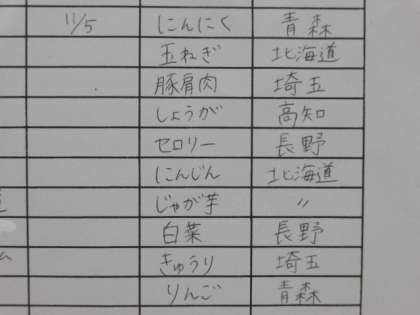 11/5 にんにく 青森
玉ねぎ 北海道
豚肩肉 埼玉
しょうが 高知
セロリー 長野
にんじん 北海道
じゃが芋 〃
白菜 長野
きゅうり 埼玉
りんご 青森